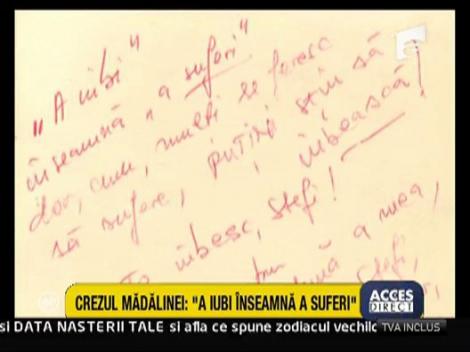 "A iubi"
înseamnă "a suferi"
dar, cum, mulți se feresc
să sufere, puțini știu să
iubească!
Te iubesc, Stefi!
a mea,
CREZUL MĂDĂLINEI: "A IUBI ÎNSEAMNĂ A SUFERI"
ACCES
DIRECT
si DATA NASTERII TALE si afla ce spune zodiacul vechilc
TVA INCLUS